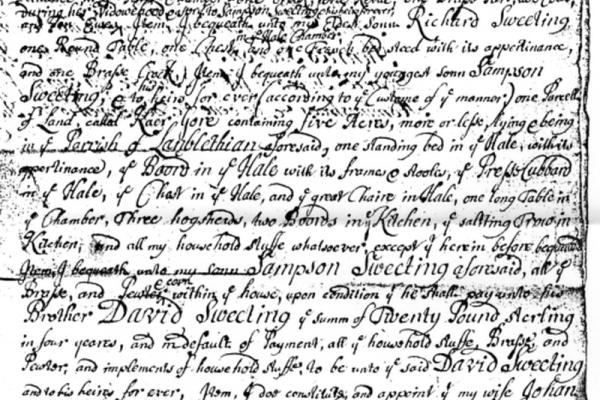 during her Widdowehood
and Ten Ewes, Item, I bequeath unto my Eldest Sonn Richard Sweeting
in ye Hale Chamber
one Round Table, one Chest, and one French bedsteed with its appertinance,
and one Brasse Crock, Item, I bequeath unto my youngest sonn Sampson
Sweeting, & to his heirs for ever (according to ye Custome of ye mannor) one Parcell
of Land, called Kaer yore containing five Acres, more or lesse, lying & being
in ye Parrish of Lanblethian aforesaid, one standing bed in ye Hale, with its
appertinance, ye Boord in ye Hale with its frame & stooles, ye Presse Cubbard
in ye Hale, ye Chest in ye Hale, and ye great Chaire in Hale, one long Table in
ye Chamber, Three hogsheds, two Boords in ye Kitchen, ye saltting Trow in
Kitchen, and all my household stuffe whatsoever, except ye herein before bequeathd
Item, I bequeath unto my sonn Sampson Sweeting aforesaid, all ye
Brasse, and Pewter, within ye house, upon condition ye he shall pay unto his
Brother David Sweeting ye summ of Twenty Pound sterling
in four yeares, and in default of Payment, all ye household stuffe, Brasse, and
Pewter, and implements of household stuffe, to be unto ye said David Sweeting
and to his heires for ever, Item, I doe constitute, and appoint ye my wife Johan